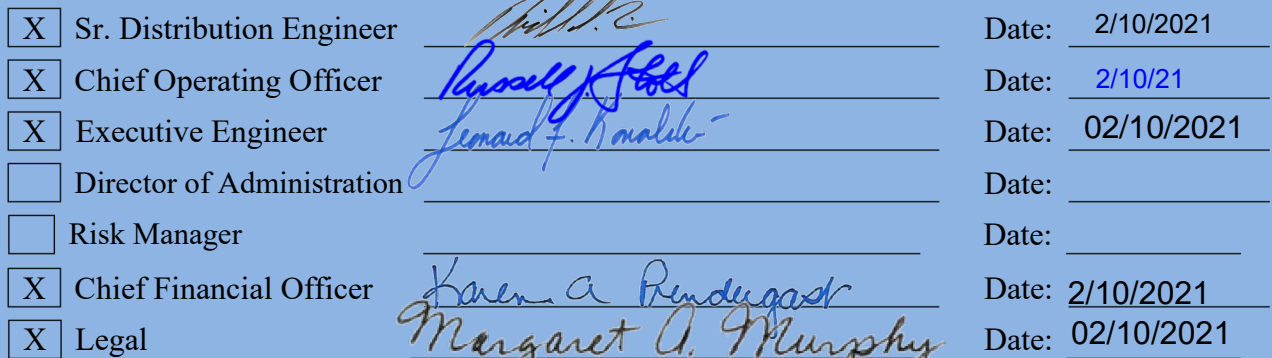 X Sr. Distribution Engineer Date: 2/10/2021
X Chief Operating Officer Russell J. Date: 2/10/21
X Executive Engineer Leonard F. Date: 02/10/2021
Director of Administration Date:
Risk Manager Date:
X Chief Financial Officer Karen A Prendergast Date: 2/10/2021
X Legal Margaret A. Murphy Date: 02/10/2021